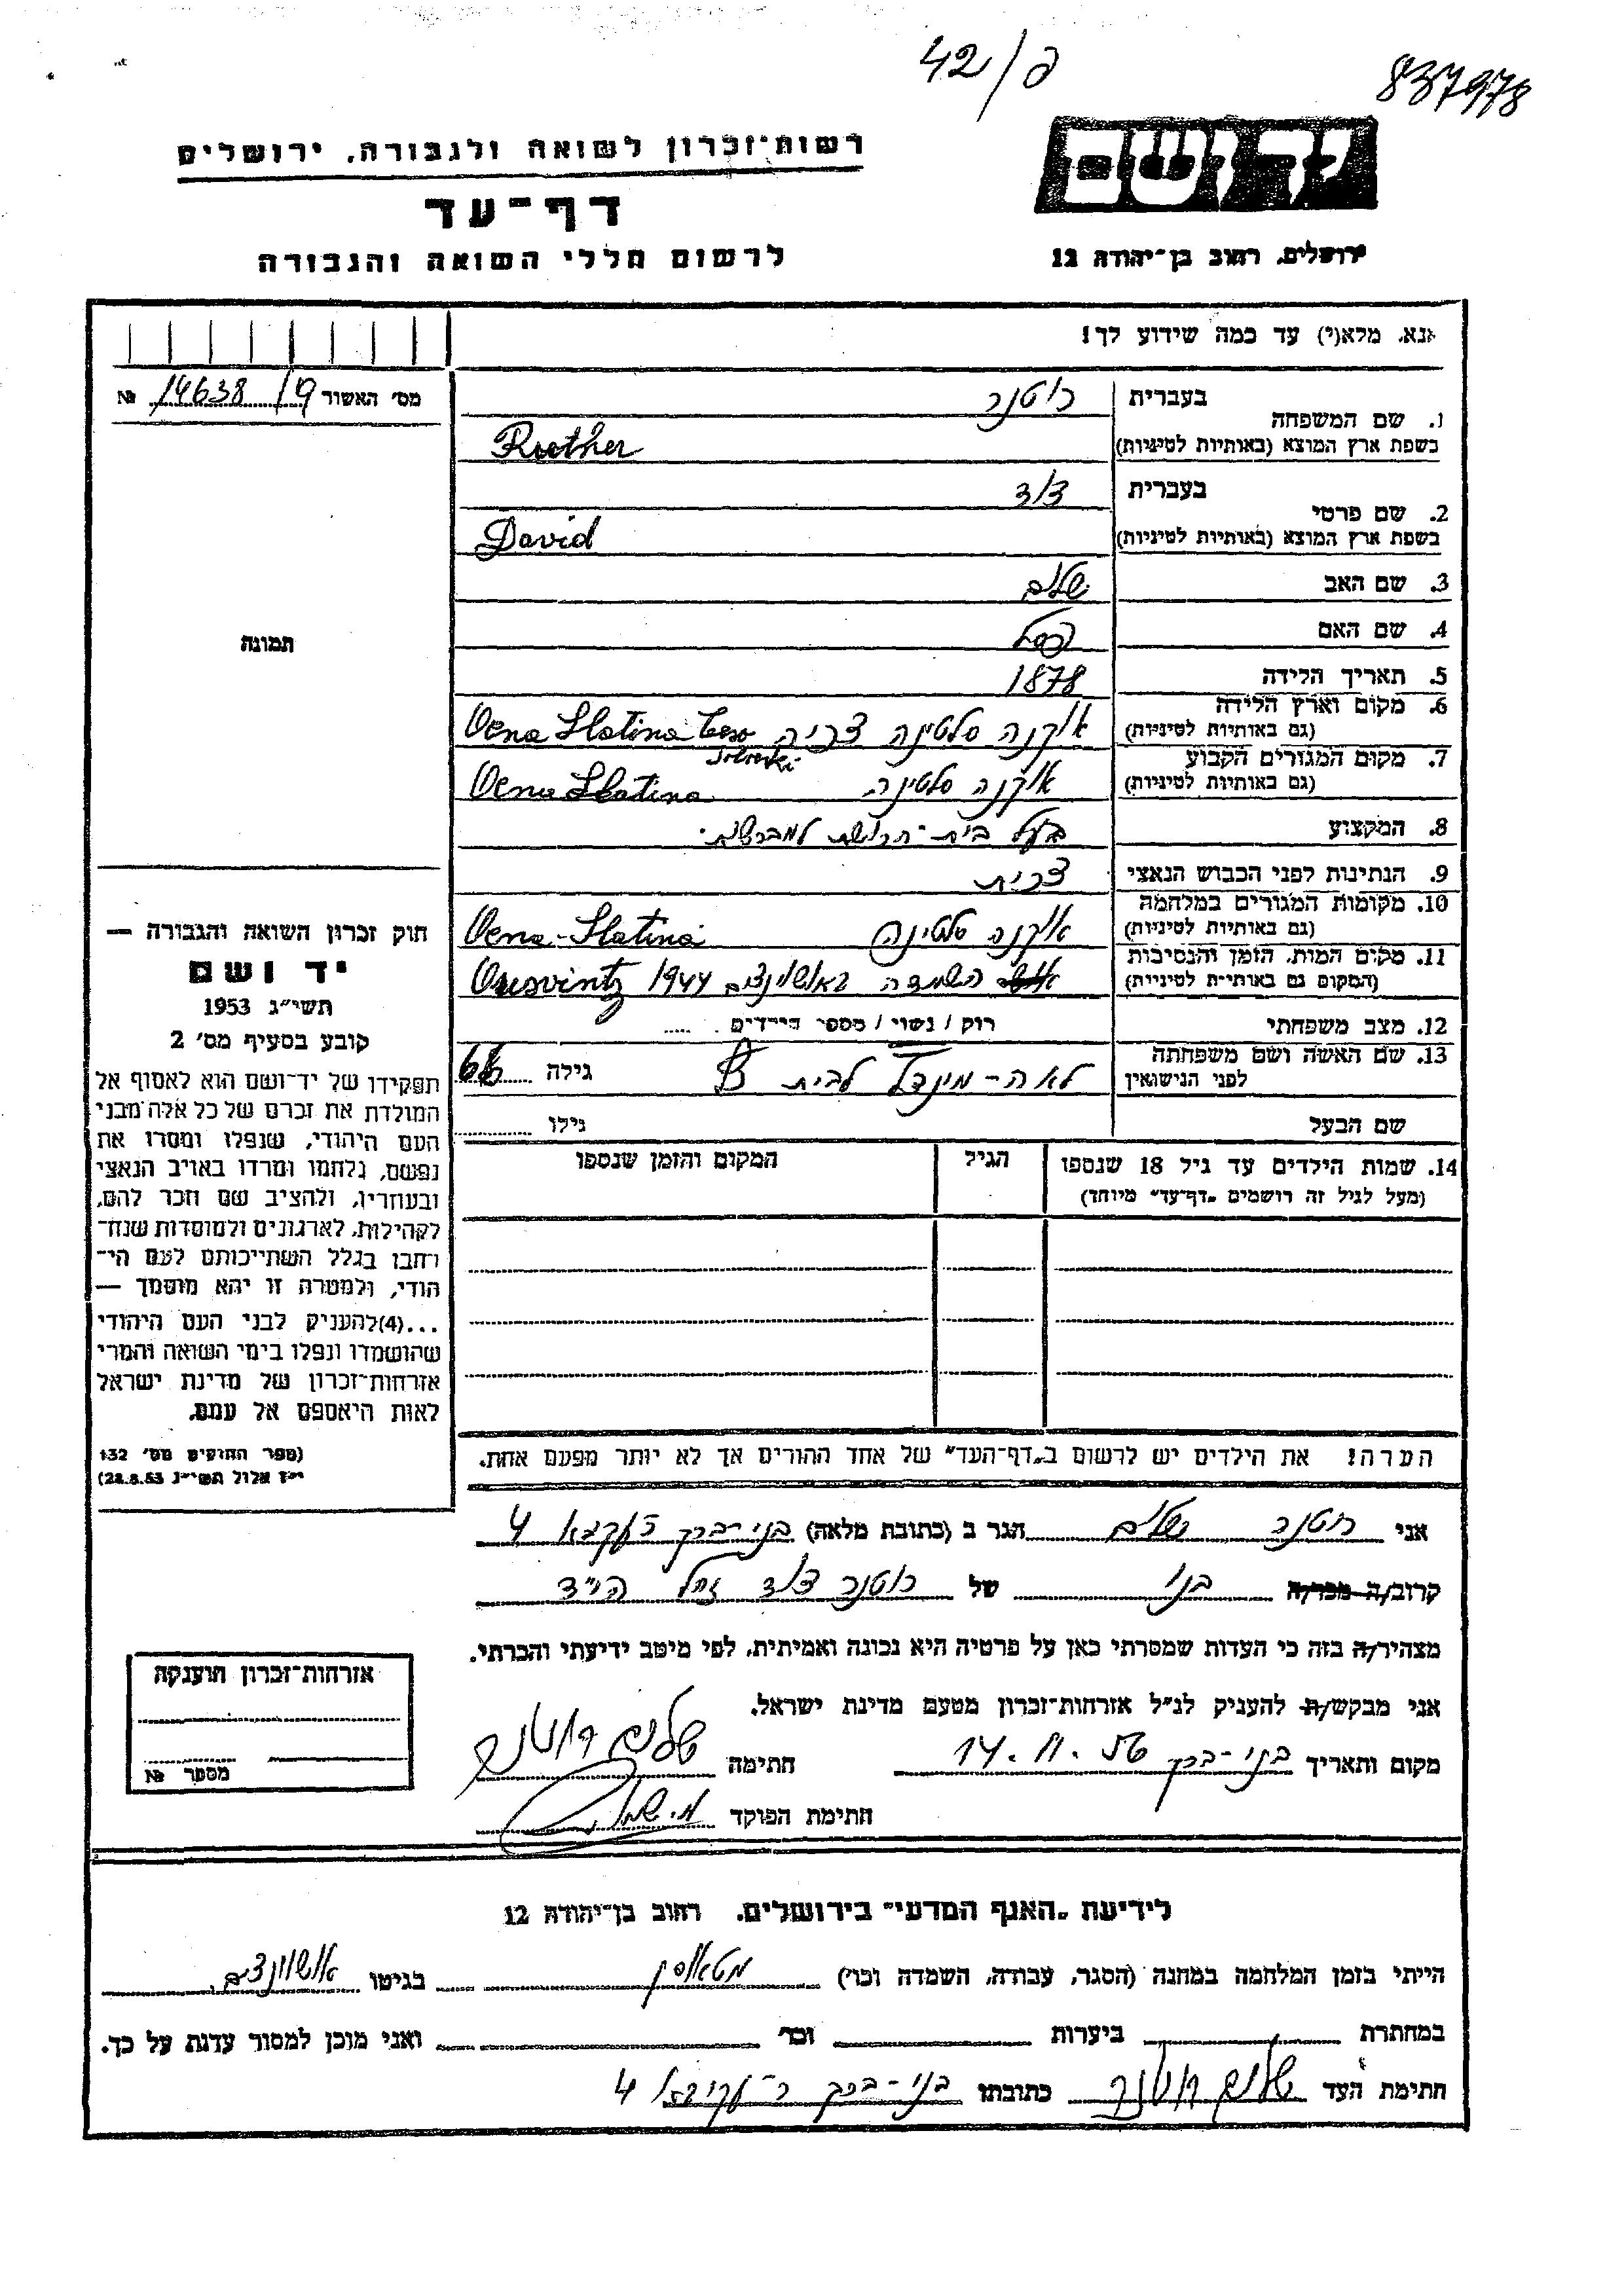 42/פ
837978
רשות־זכרון לשואה ולגבורה, ירושלים
יד ושם
דף־עד
לרשום חללי השואה והגבורה
ירושלים, רחוב בן־יהודה 12
אנא, מלא(י) עד כמה שידוע לך!
מס׳ האשור 14638 / №
1. שם המשפחה
בעברית רוטנר
בשפת ארץ המוצא (באותיות לטיניות) Ruther
2. שם פרטי
בעברית דוד
בשפת ארץ המוצא (באותיות לטיניות) David
3. שם האב שלום
4. שם האם
5. תאריך הלידה 1878
6. מקום וארץ הלידה (גם באותיות לטיניות) אוקנה סלטינה צכיה Ocna Slatina
7. מקום המגורים הקבוע (גם באותיות לטיניות) אוקנה סלטינה Ocna Slatina
8. המקצוע בעל בית־חרושת למברשות.
9. הנתינות לפני הכבוש הנאצי צכית
10. מקומות המגורים במלחמה (גם באותיות לטיניות) אוקנה סלטינה Ocna-Slatina
11. מקום המות, הזמן והנסיבות (המקום גם באותיות לטיניות) השמדה באושוינצים 1944 Ousvintz
12. מצב משפחתי רוק / נשוי / מספר הילדים
13. שם האשה ושם משפחתה לפני הנישואין לאה-מינדל לבית גילה 66
שם הבעל גילו
14. שמות הילדים עד גיל 18 שנספו (מעל לגיל זה רושמים „דף־עד״ מיוחד)
הגיל
המקום והזמן שנספו
הערה! את הילדים יש לרשום ב„דף־העד״ של אחד ההורים אך לא יותר מפעם אחת.
תמונה
חוק זכרון השואה והגבורה —
יד ושם
תשי״ג 1953
קובע בסעיף מס׳ 2
תפקידו של יד־ושם הוא לאסוף אל
המולדת את זכרם של כל אלה מבני
העם היהודי, שנפלו ומסרו את
נפשם, נלחמו ומרדו באויב הנאצי
ובעוזריו, ולהציב שם וזכר להם,
לקהילות, לארגונים ולמוסדות שנח־
רבו בגלל השתייכותם לעם הי־
הודי, ולמטרה זו יהא מוסמך —
...(4)להעניק לבני העם היהודי
שהושמדו ונפלו בימי השואה והמרי
אזרחות־זכרון של מדינת ישראל
לאות היאספם אל עמם.
(ספר החוקים מס׳ 132
י״ז אלול תשי״ג 28.8.53)
אני רוטנר שלום הגר ב (כתובת מלאה) בני-ברק ר׳ עקיבא 4
קרוב/ה מכר/ה בנו של רוטנר דוד ז״ל הי״ד
מצהיר/ה בזה כי העדות שמסרתי כאן על פרטיה היא נכונה ואמיתית, לפי מיטב ידיעתי והכרתי.
אני מבקש/ת להעניק לנ״ל אזרחות־זכרון מטעם מדינת ישראל.
מקום ותאריך בני-ברק 14.11.56 חתימה שלום רוטנר
חתימת הפוקד
אזרחות־זכרון הוענקה
מספר №
לידיעת „האגף המדעי״ בירושלים, רחוב בן־יהודה 12
הייתי בזמן המלחמה במחנה (הסגר, עבודה, השמדה וכו׳) מטאוזן בגיטו אושוינצים
במחתרת ביערות וכו׳ ואני מוכן למסור עדות על כך.
חתימת העד שלום רוטנר כתובתו בני-ברק ר-עקיבא 4